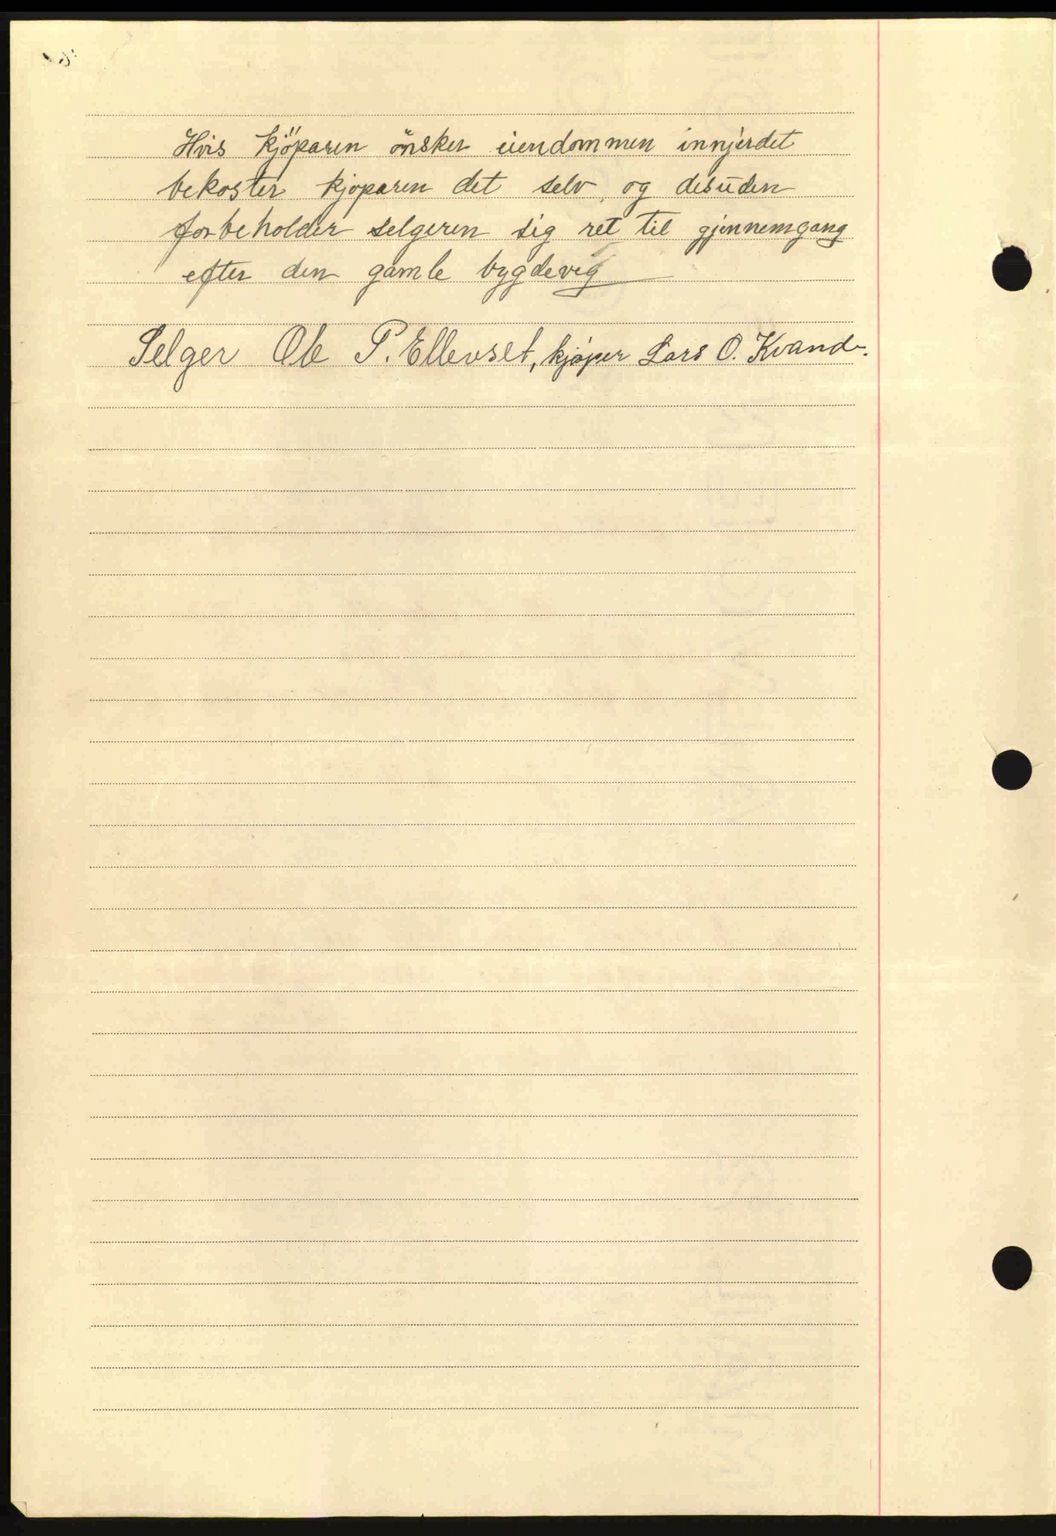 Hvis kjöparen önsker eiendommen innjerdet
bekoster kjøparen det selv, og desuden
forbeholder selgeren sig ret til gjennemgang
efter den gamle bygdeveg
Selger Ole P. Ellevset, kjøper Lars O. Kvand.